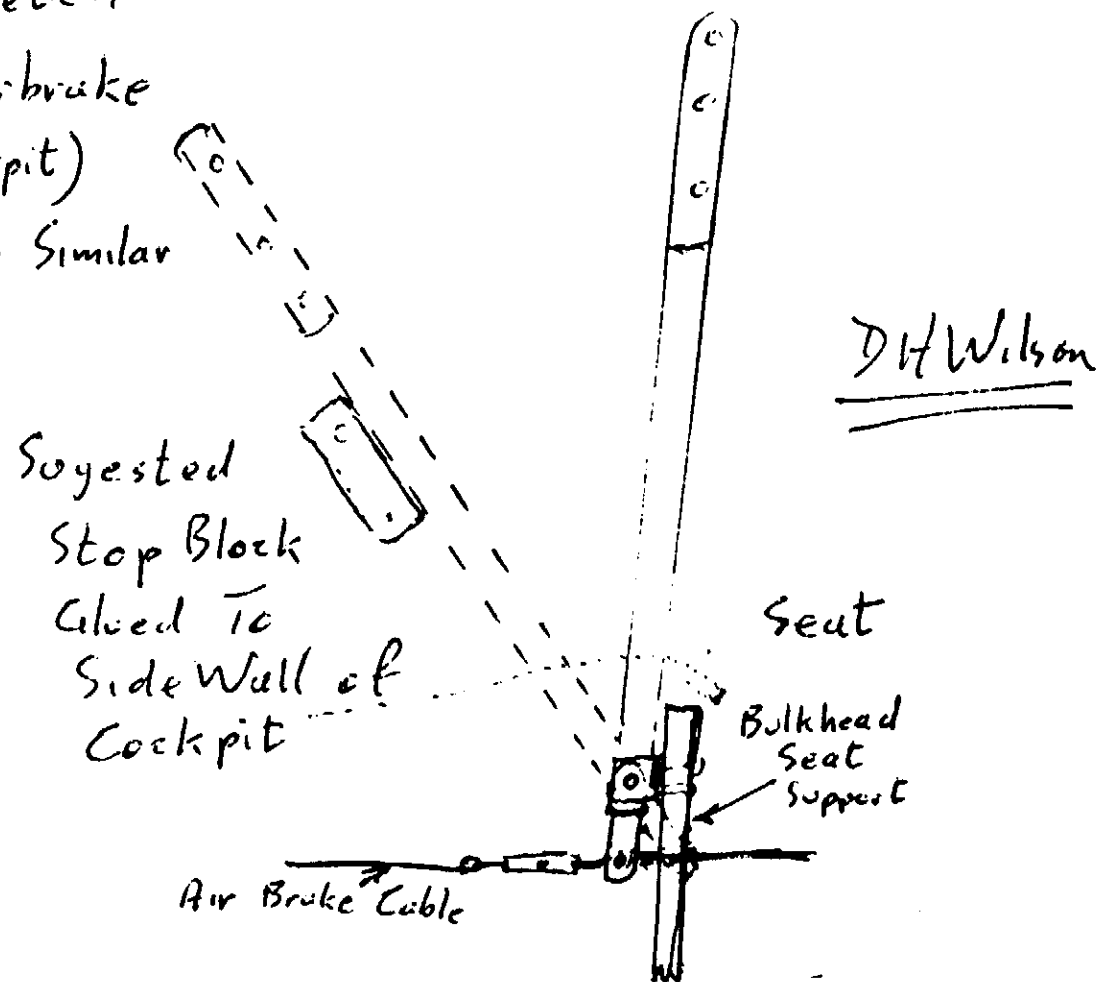 brake
pit)
Similar
Sugested
Stop Block
Glued To
Side Wall of
Cockpit
DHWilson
Seat
Bulkhead
Seat
Support
Air Brake Cable